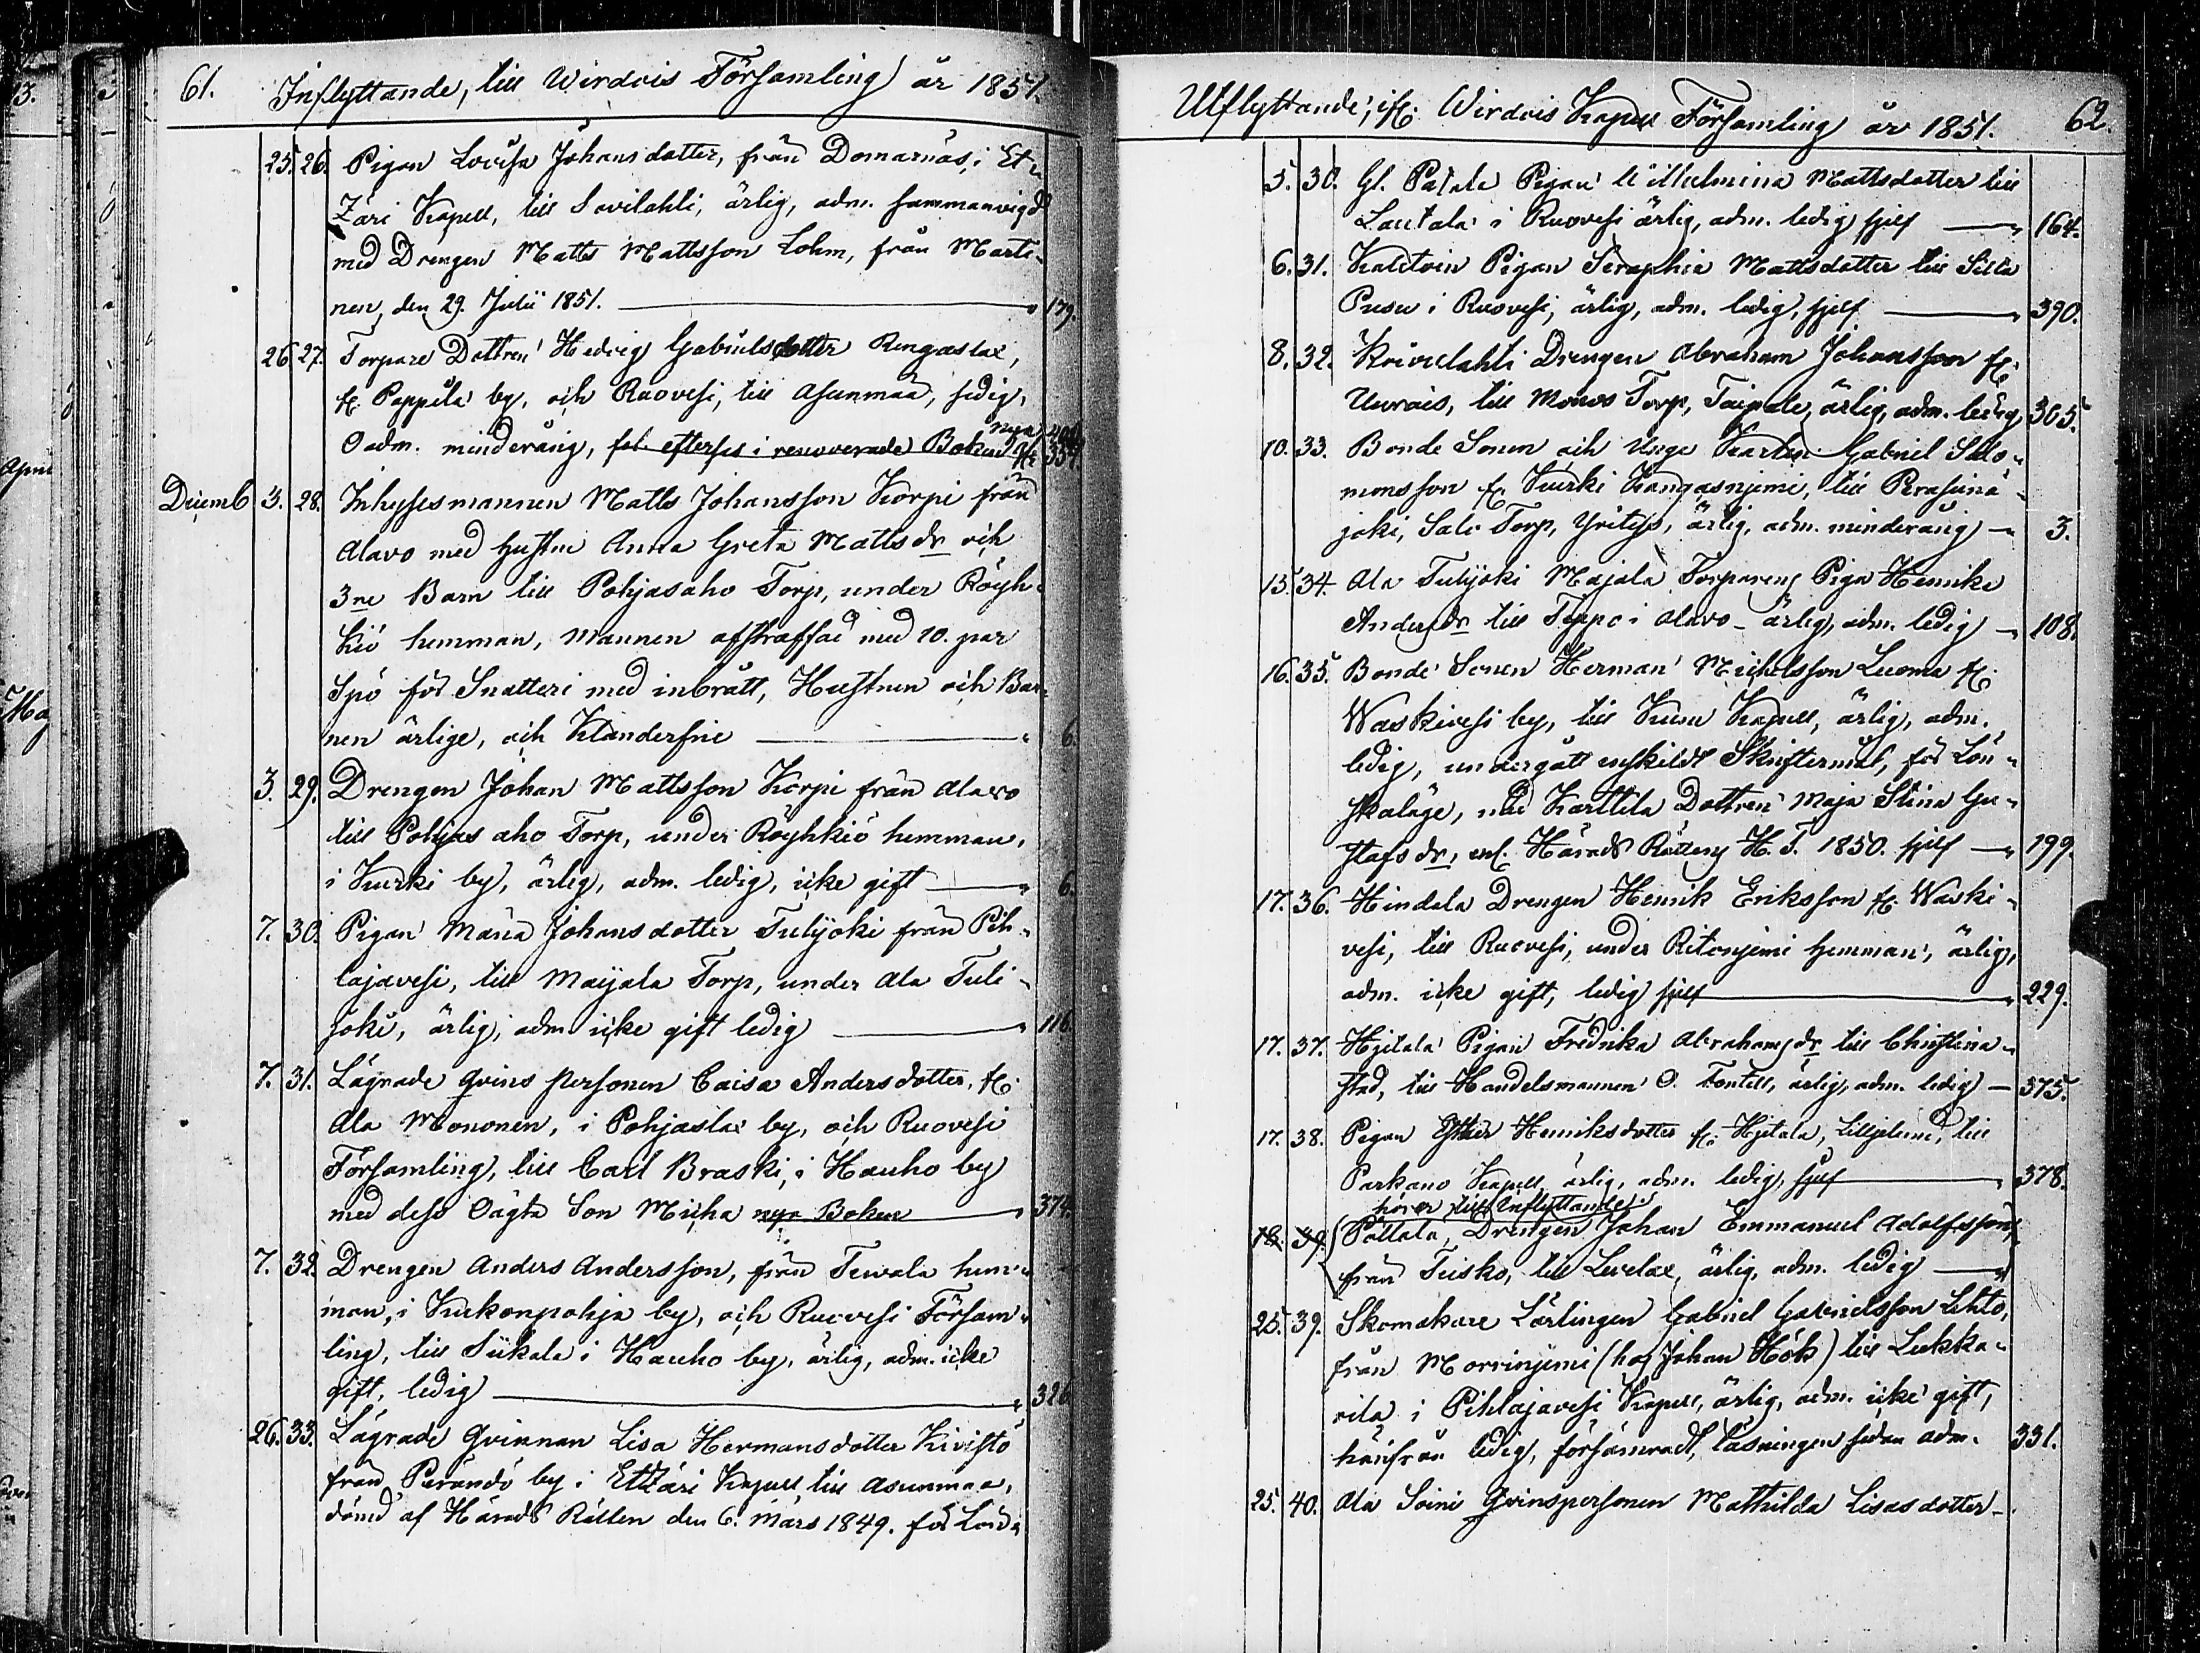 61. Inflyttande, till Wirdois Församling år 1851.
25. 26. Pigan Lovisa Johansdotter, från Domarnäs, i Et-
zäri Kapell, till Savilahti, ärlig, adm. sammanvigd
med Drengen Matts Mattsson Lohm, från Marti-
nen, den 29. Julii 1851. 179.
26. 27. Torpare Dottren Hedvig Gabrielsdotter Ringaslax,
fr. Pappila by, och Ruovesi, till Asunmaa, sedig,
Oadm. minderårig, efterses i renoverade Boken 354.
Decemb 3. 28. Inhysesmannen Matts Johansson Korpi från
Alavo med hustru Anna Greta Mattsdr och
3ne Barn till Pohjasaho Torp, under Röyh-
kiö hemman, Mannen afstraffad med 10. par
Spö för Snatteri med inbrått, Hustrun och Bar-
nen ärlige, och Klanderfrie 6.
3. 29. Drengen Johan Mattsson Korpi från Alavo
till Pohjas aho Torp, under Röyhkiö hemman,
i Kurki by, ärlig, adm. ledig, icke gift 6.
7. 30. Pigan Maria Johansdotter Tulijoki från Pih-
lajavesi, till Maijala Torp, under Ala Tuli-
joki, ärlig, adm. icke gift ledig 116.
7. 31. Lägrade qvins personen Caisa Andersdotter, fr.
Ala Mononen, i Pohjaslax by, och Ruovesi
Församling, till Carl Braski, i Hauho by
med dess Oägta Son Micha nya Boken 374.
7. 32. Drengen Anders Andersson, från Tervala hem-
man, i Kukonpohja by, och Ruovesi Försam-
ling, till Siikala i Hauho by, ärlig, adm. icke
gift, ledig 326
26. 33. Lägrade Qvinnan Lisa Hermansdotter Kivistö
från Perändö by i Etzäri Kapell till Asunmaa,
dömd af Härads Rätten den 6. Mars 1849. för Löns-
Utflyttande, ifr. Wirdois Kapell Församling år 1851. 62.
5. 30. Gl. Patala Pigan Wilhelmina Mattsdotter till
Lautala i Ruovesi ärlig, adm. ledig sjelf 164.
6. 31. Pigan Seraphia Mattsdotter till
i Ruovesi, ärlig, adm. ledig, sjelf 390.
8. 32. Koivulahti Drengen Abraham Johansson fr.
Uurais, till Monos Torp, Taipale, ärlig, adm. ledig 305.
10. 33. Bonde Sonen och Unge Karlen Gabriel Salo-
monsson fr. Kurki Kangasnjemi, till Peraseinä-
joki, Salo Torp, ärlig, adm. minderårig 3.
15. 34. Ala Tulijoki Majala Torparens Piga Henrika
Andersdr till Teppo i Alavo ärlig, adm. ledig 108.
16. 35. Bonde Sonen Herman Michelsson Luoma fr.
Waskivesi by, till Kuru Kapell, ärlig, adm.
ledig, undergått enskildt Skriftermål, för Lön-
skaläge, med Karttila Dottren Maja Stina Gu-
stafsdr, enl. Härads Rättens H. T. 1850. sjelf 199.
17. 36. Hindala Drengen Henrik Eriksson fr. Waski-
vesi, till Ruovesi, under Ritonjemi hemman, ärlig,
adm. icke gift, ledig sjelf 229.
17. 37. Hjitala Pigan Fredrika Abrahamsdr till Christina-
stad, till Handelsmannen O. Fontell, ärlig, adm. ledig 375.
17. 38. Pigan Esther Henriksdotter fr. Hjitala, Liljelund, till
Parkano Kapell, ärlig, adm. ledig, sjelf 378.
hörer till Inflyttande.
18. 39. (Pättala, Drengen Johan Emmanuel Adolfsson,
från Teisko, till Levelax, ärlig, adm. ledig
25. 39. Skomakare Lärlingen Gabriel Gabrielsson Lehto,
från Morrinjemi (hos Johan Hök) till Lukka-
rila i Pihlajavesi Kapell, ärlig, adm. icke gift,
härifrån ledig, församradt, läsningen sedan adm. 331.
25. 40. Ala Soini Qvinspersonen Mathilda Lisasdotter